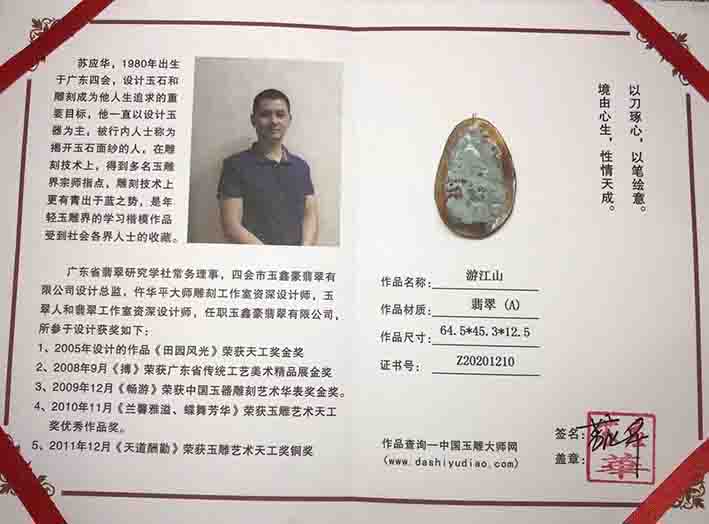 苏应华，1980年出生
于广东四会，设计玉石和
雕刻成为他人生追求的重
要目标，他一直以设计玉
器为主，被行内人士称为
揭开玉石面纱的人，在雕
刻技术上，得到多名玉雕
界宗师指点，雕刻技术上
更有青出于蓝之势，是年
轻玉雕界的学习楷模作品
受到社会各界人士的收藏。
广东省翡翠研究学社常务理事，四会市玉鑫豪翡翠有
限公司设计总监，仵华平大师雕刻工作室资深设计师，玉
翠人和翡翠工作室资深设计师，任职玉鑫豪翡翠有限公司，
所参于设计获奖如下：
1、2005年设计的作品《田园风光》荣获天工奖金奖
2、2008年9月《搏》荣获广东省传统工艺美术精品展金奖
3、2009年12月《畅游》荣获中国玉器雕刻艺术华表奖金奖。
4、2010年11月《兰馨雅溢、蝶舞芳华》荣获玉雕艺术天工
奖优秀作品奖。
5、2011年12月《天道酬勤》荣获玉雕艺术天工奖铜奖
以刀琢心，以笔绘意。
境由心生，性情天成。
作品名称：游江山
作品材质：翡翠（A）
作品尺寸：64.5*45.3*12.5
证书号：Z20201210
作品查询—中国玉雕大师网
(www.dashiyudiao.com)
签名：
盖章：